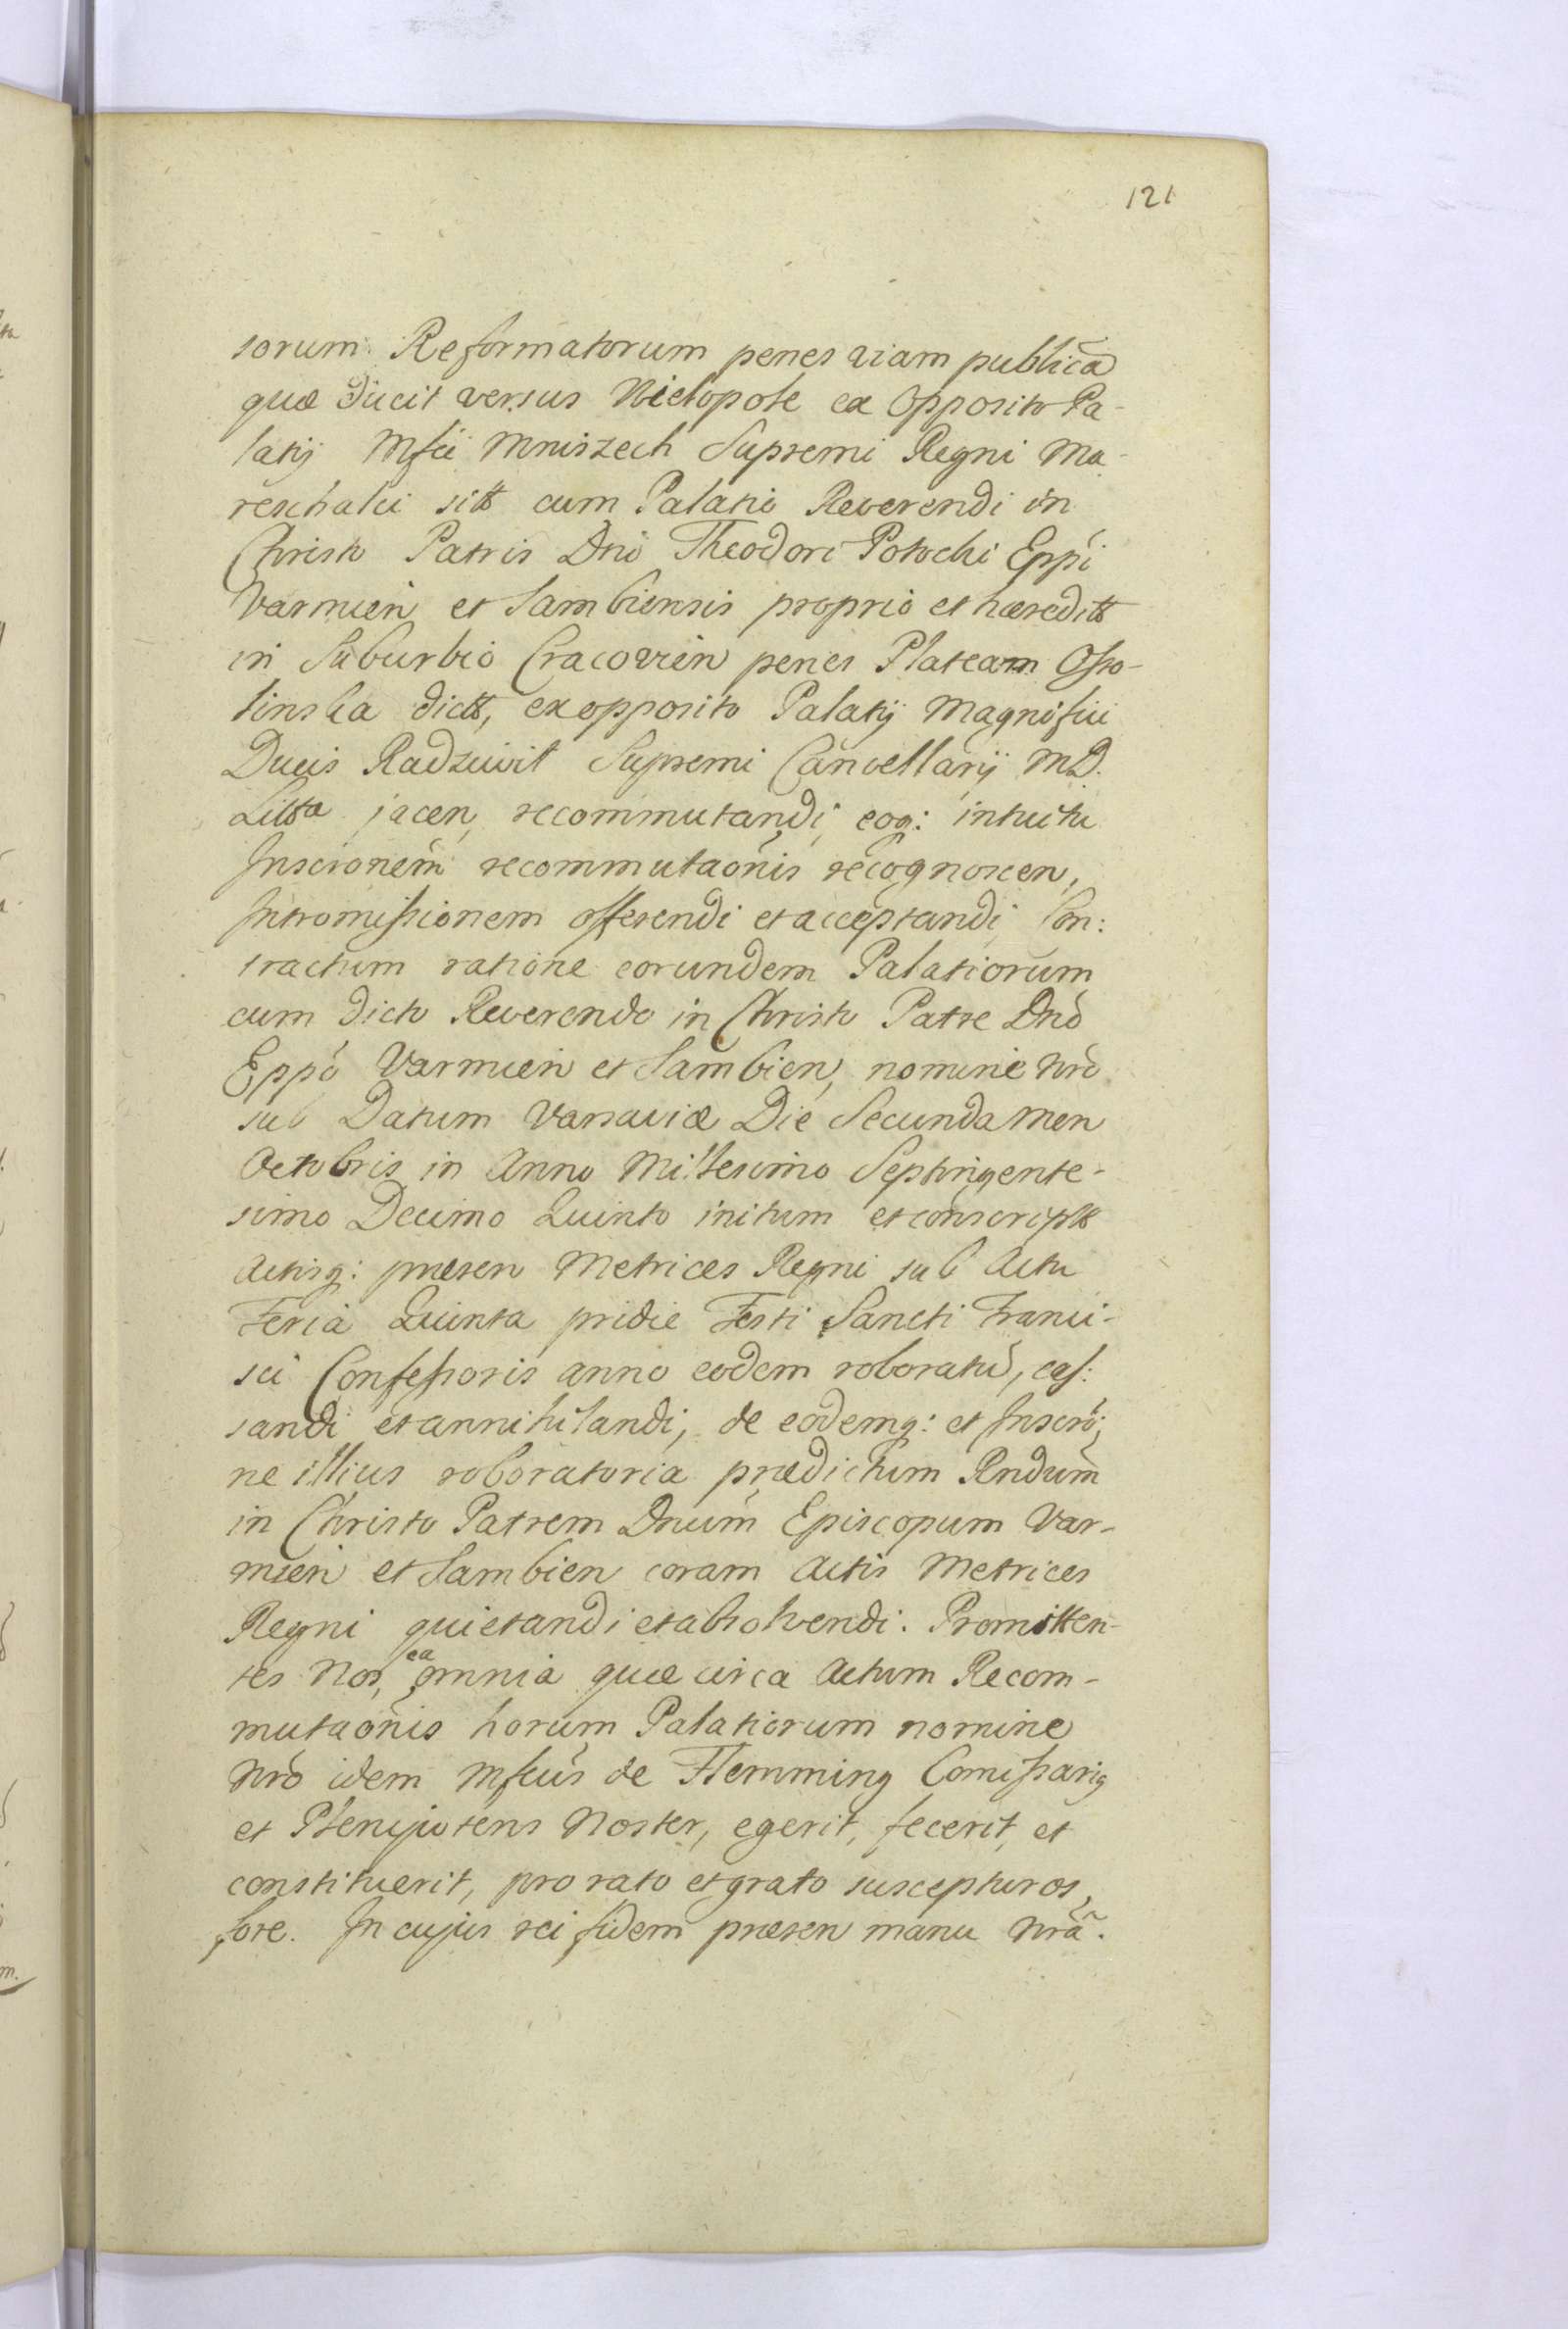 121
sorum Reformatorum penes viam publicã
quæ ducit versus Wielopole ex Opposito Pa-
latij Mfci Mniszech Supremi Regni Ma-
reschalci sitt cum Palatio Reverendi in
Christo Patris Dni Theodori Potocki Eppi
Varmien et Sambiensis proprio et hæredit
in Suburbio Cracovien penes Plateam Osso-
linska dict, ex opposito Palatij Magnifici
Ducis Radziwil Supremi Cancellarij M.D.
Litta jacen, recommutandi, eoq: intuitu
Inscrionem recommutaonis recognoscen,
Intromissionem offerendi et acceptandi, Con:
tractum ratione eorundem Palatiorum
cum dicto Reverendo in Christo Patre Dnõ
Eppõ Varmien et Sambien, nomine Nrõ
sub Datum Varsaviæ Die Secunda Men
Octobris in Anno Millesimo Septingente-
simo Decimo Quinto initum et conscript
Actisq: præsen Metrices Regni sub Actu
Feria Quinta pridie Festi Sancti Franci-
sci Confessoris anno eodem roboratũ, cas:
sandi et annihilandi, de eodemq: et Inscrõ:
ne illius roboratoria prædictum Rndum
in Christo Patrem Dnum Episcopum Var-
mien et Sambien coram Actis Metrices
Regni quietandi et absolvendi. Promitten-
tes Nos, ea omnia quæ circa Actum Recom-
mutaonis horum Palatiorum nomine
Nrõ idem Mfcus de Flemming Comissariq
et Plenipotens Noster, egerit, fecerit, et
constituerit, pro rato et grato suscepturos,
fore. In cujus rei fidem præsen manu Nrã.